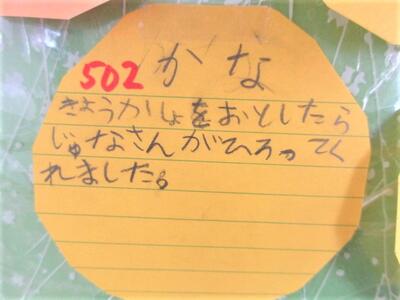 502 かな
きょうかしょをおとしたら
じゅなさんがひろってく
れました。